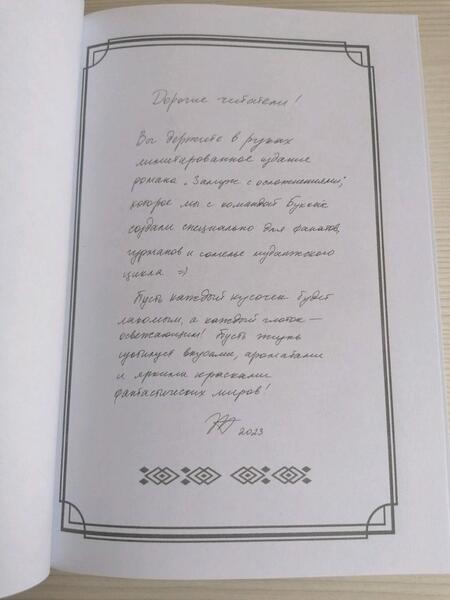 Дорогие читатели!
Вы держите в руках
лимитированное издание
романа „Замуж с осложнениями",
которое мы с командой Букмас
создали специально для фанатов,
гурманов и сомелье муданжского
цикла =)
Пусть каждый кусочек будет
лакомым, а каждый глоток —
освежающим! Пусть жизнь
изобилует вкусами, ароматами
и яркими красками
фантастических миров!
2023